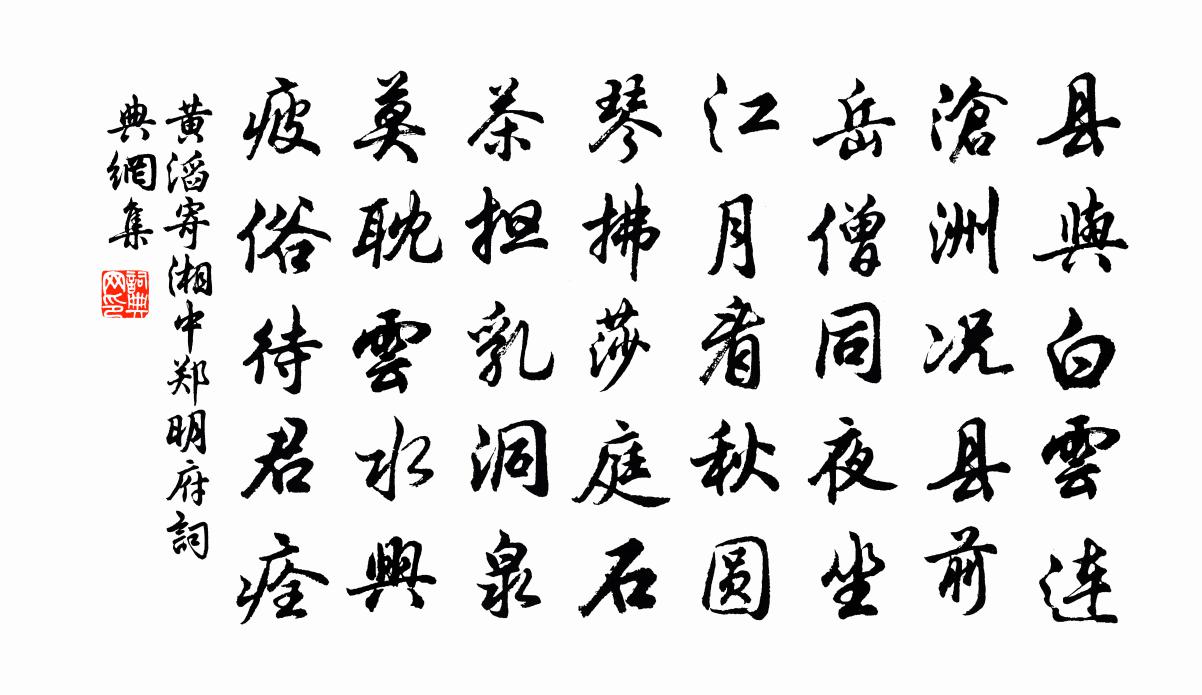 县與白雲連
滄洲况县前
岳僧同夜坐
江月看秋圆
琴拂莎庭石
茶担乳洞泉
莫耽雲水興
疲俗待君痊
黄滔寄湘中郑明府詞
典網集
詞典
网印